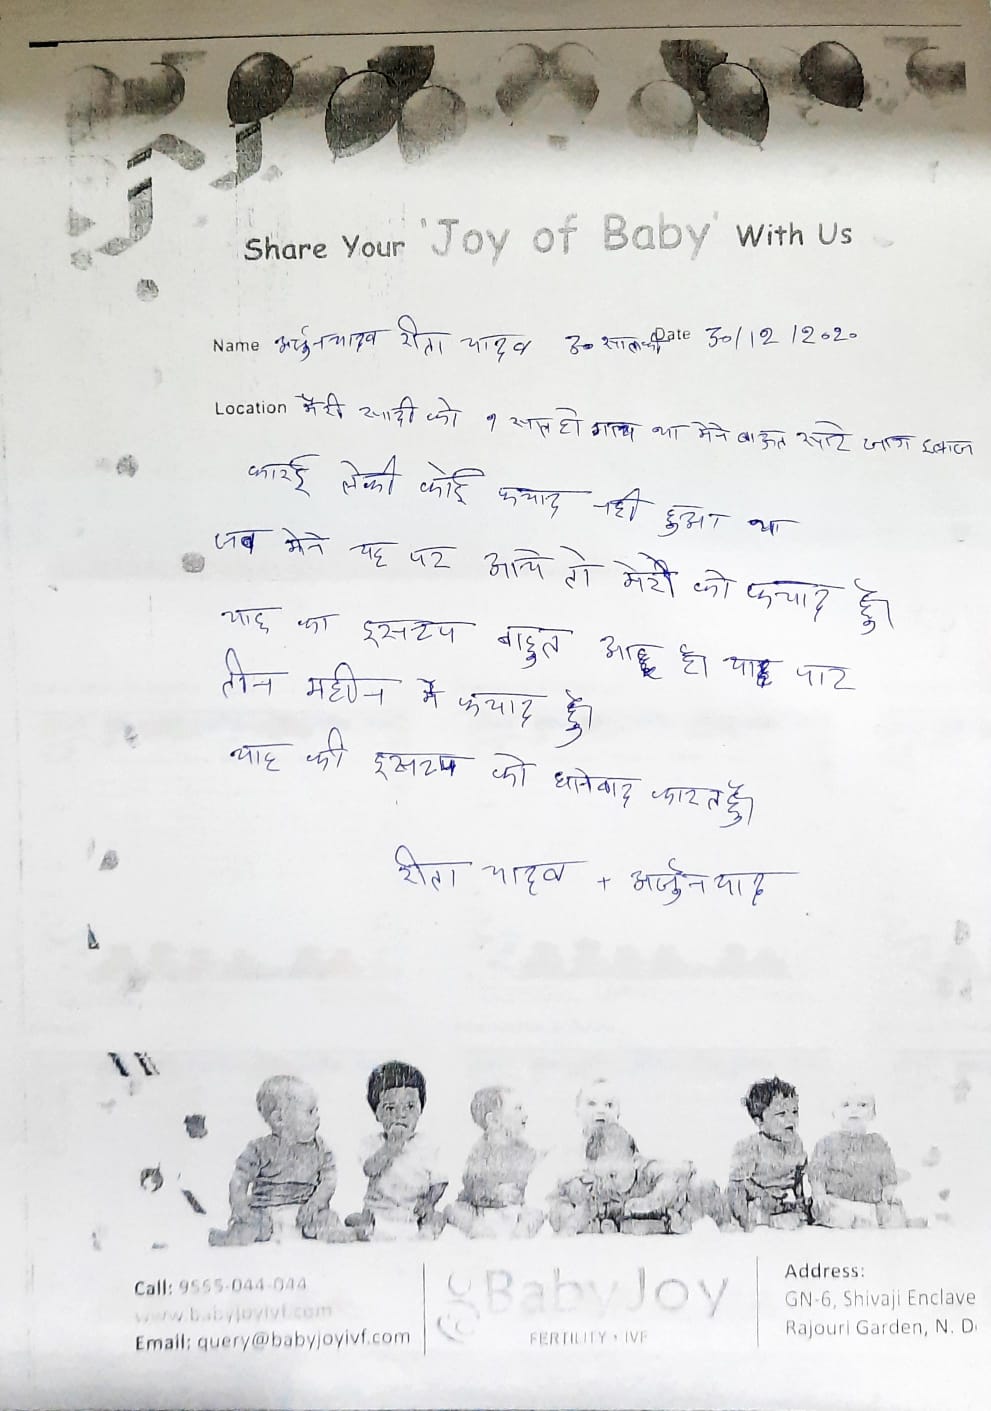 Share Your 'Joy of Baby' With Us
Name अर्जुन यादव रीता यादव 30 सालकी Date 30/12/2020
Location मेरी सादी को 9 साल हो गाय था मेने बाऊत सारे जाग इलाज
कारई लेकी कोई फयाद नही हुआ था
जब मेने यह पर आये तो मेरी को फयाद है।
याह का इसटाप बाहुत आछ है। याह पार
तीन महीन मे फयाद हु।
याह की इसटाप को धानेबाद कारत हुँ।
रीता यादव + अर्जुन याद
Call: 9555-044-044
www.babyjoyivf.com
Email: query@babyjoyivf.com
BabyJoy
FERTILITY • IVF
Address:
GN-6, Shivaji Enclave
Rajouri Garden, N. D